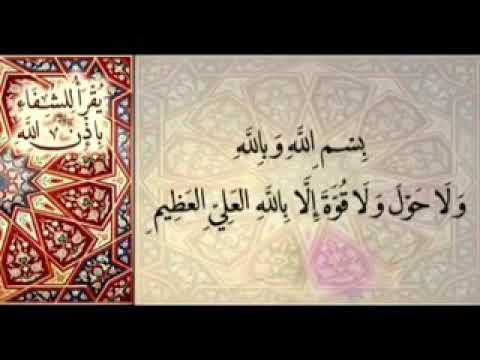 يُقْرَأُ لِلشِّفَاءِ
بِإِذْنِ اللَّهِ
بِسْمِ اللَّهِ وَبِاللَّهِ
وَلَا حَوْلَ وَلَا قُوَّةَ إِلَّا بِاللَّهِ العَلِيِّ العَظِيمِ